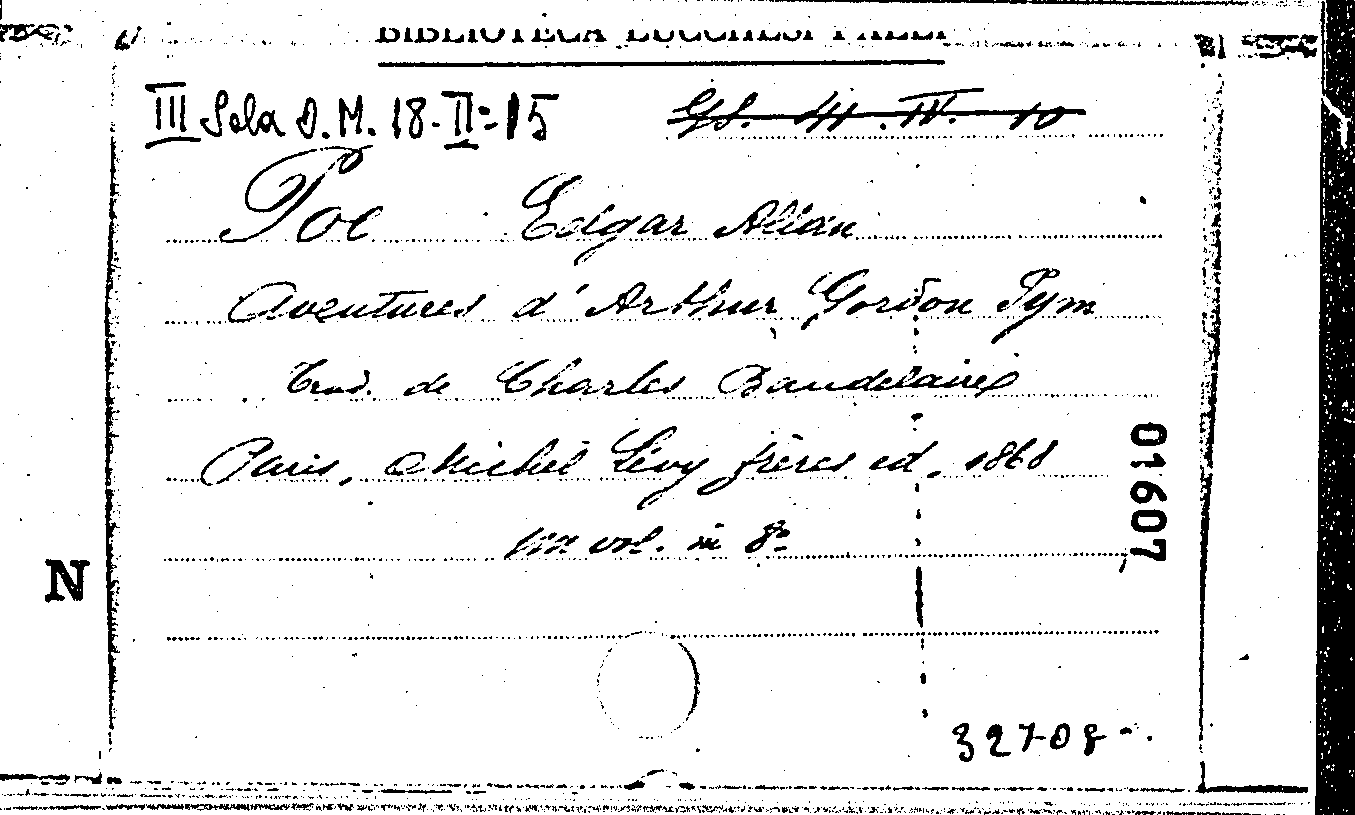 BIBLIOTECA LUCCHESI PALLI
III Sala D.M. 18-II-15
IV. 10
Poe Edgar Allan
Aventures d'Arthur Gordon Pym
Trad. de Charles Baudelaire
Paris, Michel Lévy frères ed, 1868
un vol. in 8º
01607
N
32708